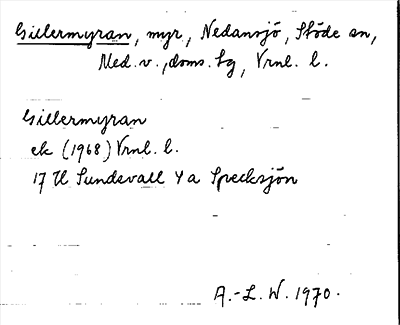 Gillermyran, myr, Nedansjö, Stöde sn,
Med. v., doms. tg, Vrnl. l.
Gillermyran
ek (1968) Vrnl. l.
17 H Sundsvall 4 a Specksjön
A.-L. W. 1970.